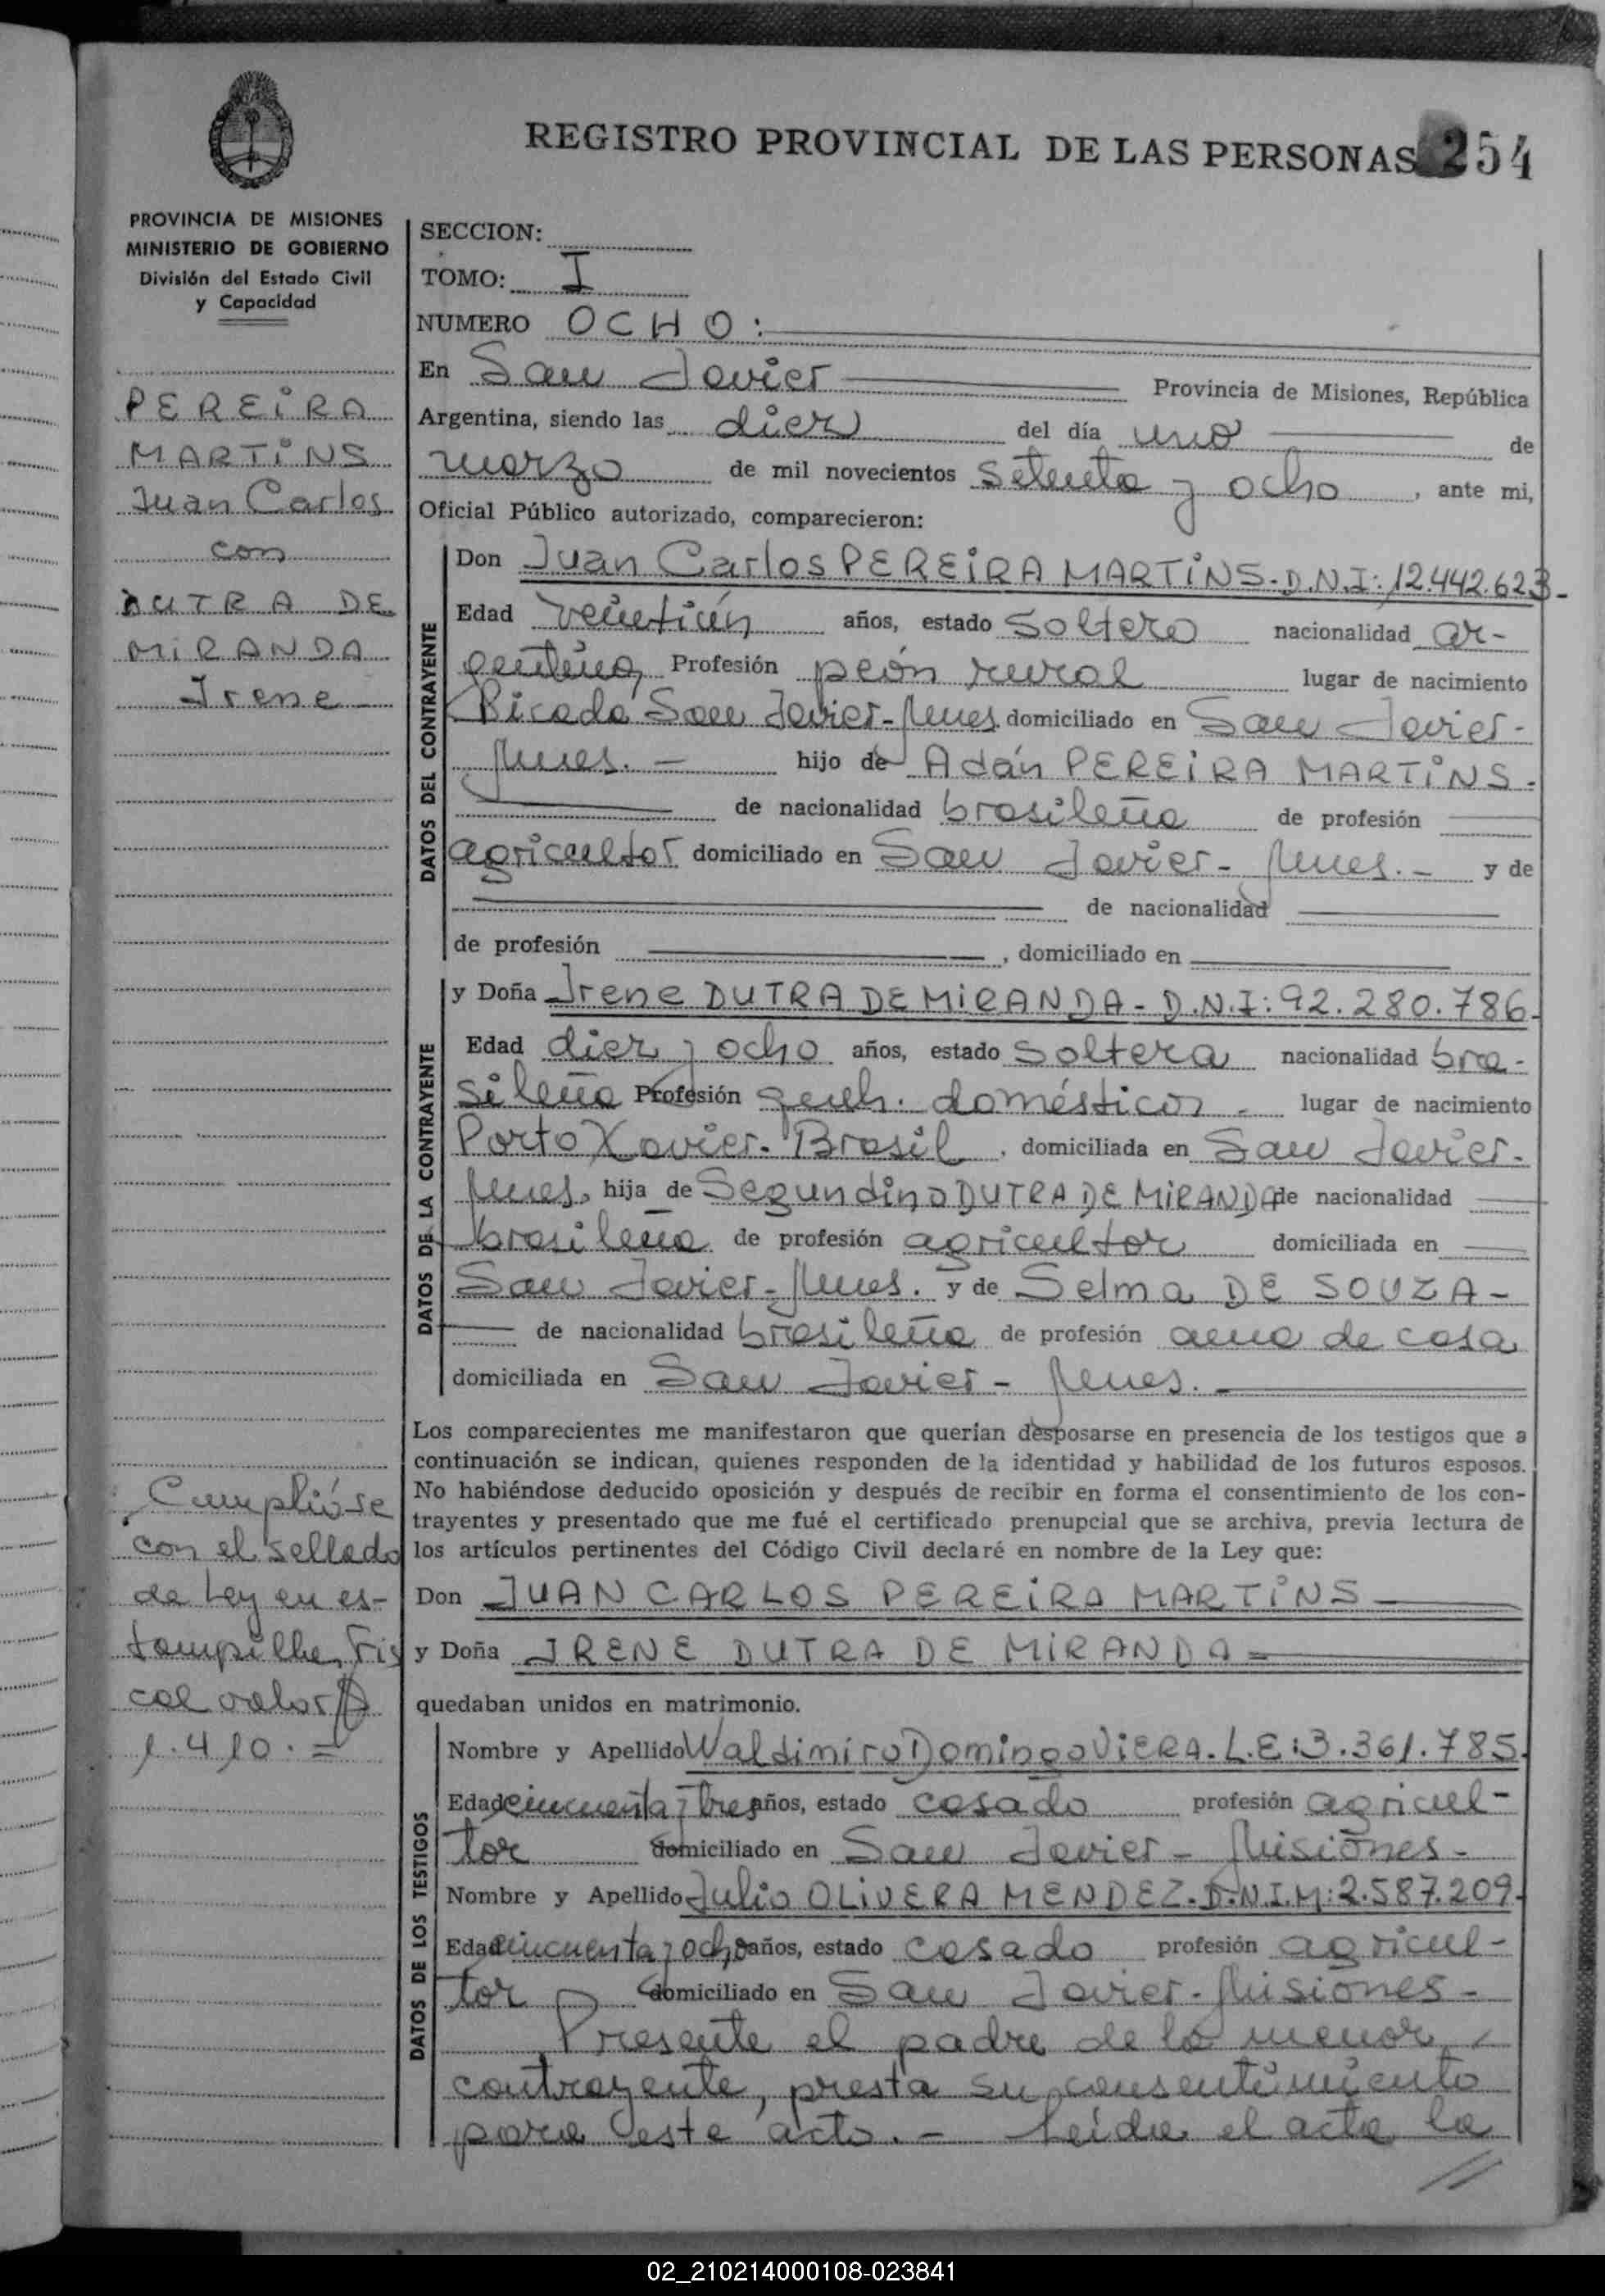 REGISTRO PROVINCIAL DE LAS PERSONAS 254
PROVINCIA DE MISIONES
MINISTERIO DE GOBIERNO
División del Estado Civil
y Capacidad
PEREIRA
MARTINS
Juan Carlos
con
DUTRA DE
MIRANDA
Irene
Cumplióse
con el sellado
de Ley en es-
tampilla Fis
cal valor $
1.410.=
SECCION:
TOMO: I
NUMERO OCHO:
En San Javier Provincia de Misiones, República
Argentina, siendo las diez del día uno de
marzo de mil novecientos setenta y ocho, ante mi,
Oficial Público autorizado, comparecieron:
DATOS DEL CONTRAYENTE
Don Juan Carlos PEREIRA MARTINS-D.N.I: 12.442.623-
Edad veintiún años, estado soltero nacionalidad ar-
gentina, Profesión peón rural lugar de nacimiento
Picada San Javier-Mnes. domiciliado en San Javier-
Mnes.- hijo de Adán PEREIRA MARTINS-
de nacionalidad brasileña de profesión
agricultor domiciliado en San Javier-Mnes.- y de
de nacionalidad
de profesión , domiciliado en
DATOS DE LA CONTRAYENTE
y Doña Irene DUTRA DE MIRANDA-D.N.I: 92.280.786-
Edad diez y ocho años, estado soltera nacionalidad bra-
sileña Profesión queh. domésticos- lugar de nacimiento
Porto Xavier-Brasil, domiciliada en San Javier-
Mnes, hija de Segundino DUTRA DE MIRANDA de nacionalidad
brasileña de profesión agricultor domiciliada en
San Javier-Mnes. y de Selma DE SOUZA-
de nacionalidad brasileña de profesión ama de casa
domiciliada en San Javier-Mnes.
Los comparecientes me manifestaron que querían desposarse en presencia de los testigos que a
continuación se indican, quienes responden de la identidad y habilidad de los futuros esposos.
No habiéndose deducido oposición y después de recibir en forma el consentimiento de los con-
trayentes y presentado que me fué el certificado prenupcial que se archiva, previa lectura de
los artículos pertinentes del Código Civil declaré en nombre de la Ley que:
Don JUAN CARLOS PEREIRA MARTINS
y Doña IRENE DUTRA DE MIRANDA
quedaban unidos en matrimonio.
DATOS DE LOS TESTIGOS
Nombre y Apellido Waldimiro Domingo VIERA-L.E: 3.361.785-
Edad cincuenta y tres años, estado casado profesión agricul-
tor domiciliado en San Javier-Misiones-
Nombre y Apellido Julio OLIVERA MENDEZ-D.N.I.M: 2.587.209-
Edad cincuenta y ocho años, estado casado profesión agricul-
tor domiciliado en San Javier-Misiones-
Presente el padre de la menor
contrayente, presta su consentimiento
para este acto.- Leída el acta la
//
02_210214000108-023841